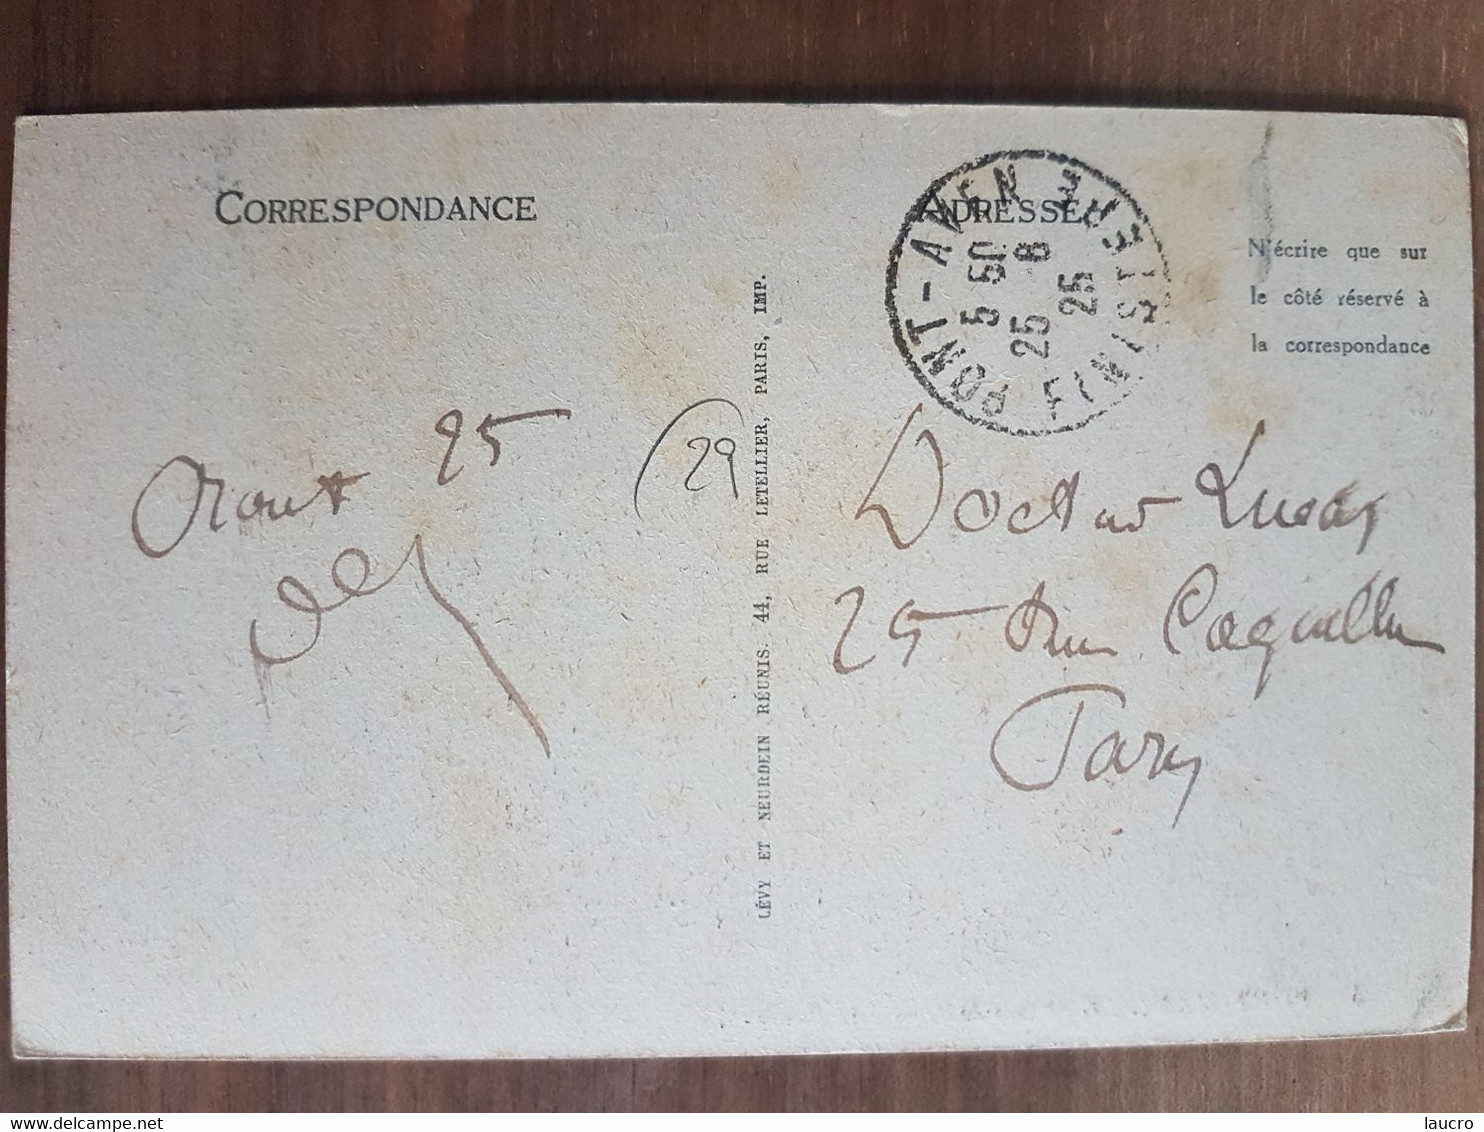 CORRESPONDANCE
ADRESSE
N'écrire que sur
le côté réservé à
la correspondance
PONT-AVEN FINISTERE
5 50
25 8
25
Aout 25
(29
LÉVY ET NEURDEIN RÉUNIS. 44, RUE LETELLIER, PARIS, IMP.
Docteur Lucas
25 Rue
Paris
laucro